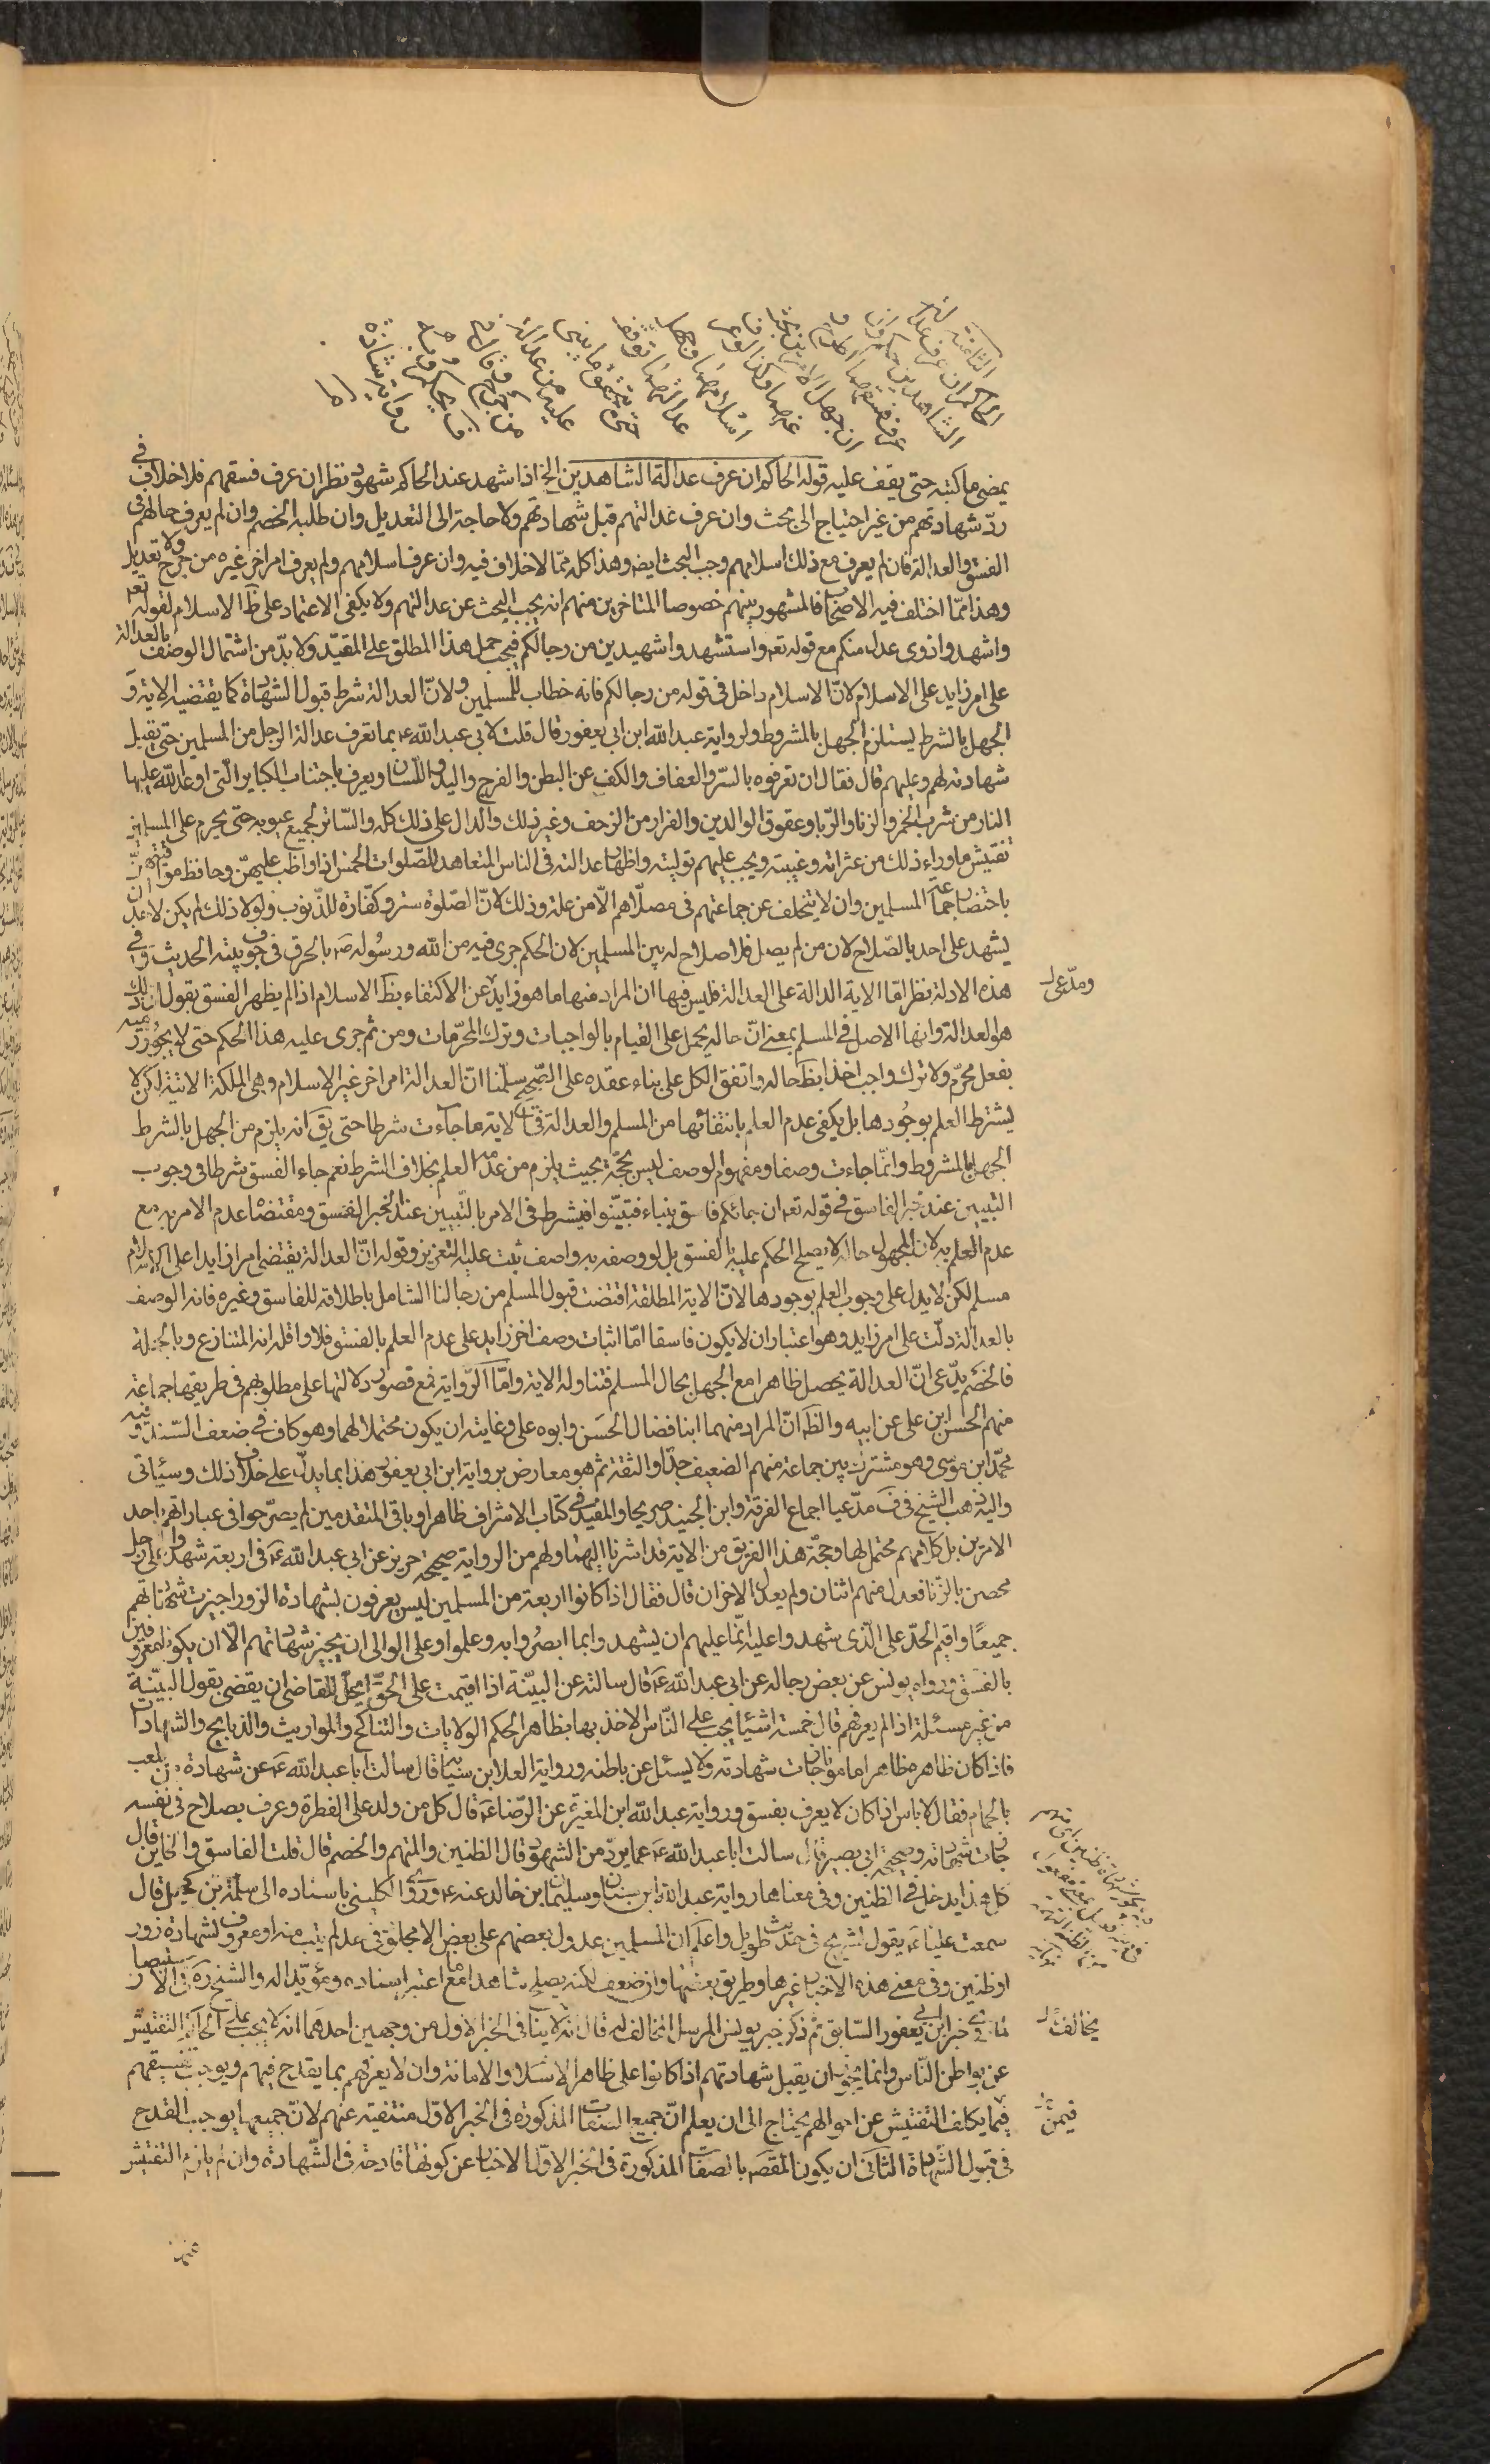 الثامنة
الحاكم ان عرف عدالة
الشاهدين حكم وان
عرف فسقهما اطرح و
ان جهل الامرين بحث
عنهما وكذا لو عرف
اسلامهما وجهل
عدالتهما توقف
حتى يتحقق ما يبنى
عليه من عدالة
او جرح وقال في
ف يحكم وبه
رواية شاذة
يمضى ما كتبه حتى يقف عليه قوله الحاكم ان عرف عدالة الشاهدين الخ اذا شهد عند الحاكم شهود نظر ان عرف فسقهم فلا خلاف في
ردّ شهادتهم من غير احتياج الى بحث وان عرف عدالتهم قبل شهادتهم ولا حاجة الى التعديل وان طلبه الخصم وان لم يعرف حالهم في
الفسق والعدالة فان لم يعرف مع ذلك اسلامهم وجب البحث ايضا وهذا كله ممّا لا خلاف فيه وان عرف اسلامهم ولم يعرف امرا اخر غيره من جرح ولا تعديل
وهذا ممّا اختلف فيه الاصحاب فالمشهور بينهم خصوصا المتاخرين منهم انه يجب البحث عن عدالتهم ولا يكفى الاعتماد على ظ الاسلام لقوله تعه
واشهدوا ذوى عدل منكم مع قوله تعه واستشهدوا شهيدين من رجالكم فيجب حمل هذا المطلق على المقيد ولا بدّ من اشتمال الوصف بالعدالة
على امر زايد على الاسلام لانّ الاسلام داخل في قوله من رجالكم فانه خطاب للمسلمين ولانّ العدالة شرط قبول الشهادة كما يقتضيه الاية و
الجهل بالشرط يستلزم الجهل بالمشروط ولرواية عبد الله ابن ابى يعفور قال قلت لابى عبد الله ع بما تعرف عدالة الرجل من المسلمين حتى تقبل
شهادته لهم وعليهم قال فقال ان تعرفوه بالستر والعفاف والكف عن البطن والفرج واليد واللسان ويعرف باجتناب الكباير الّتى اوعد الله عليها
النار من شرب الخمر والزنا والرّبا وعقوق الوالدين والفرار من الزحف وغير ذلك والدال على ذلك كله والسّاتر لجميع عيوبه حتى يحرم على المسلمين
تفتيش ماوراء ذلك من عثراته وغيبته ويجب عليهم توليته واظهار عدالته في الناس المتعاهد للصّلوات الخمس اذا واظب عليهنّ وحافظ مواقيتهنّ
باحتضار جماعة المسلمين وان لا يتخلف عن جماعتهم في مصلّاهم الّا من علة وذلك لانّ الصّلوة ستر وكفّارة للذّنوب ولولا ذلك لم يكن لاحد ان
يشهد على احد بالصّلاح لان من لم يصل فلا صلاح له بين المسلمين لان الحكم جرى فيه من الله ورسُوله ص بالحرق في جوف بيته الحديث وفي
هذه الادلة نظر امّا الاية الدالة على العدالة فليس فيها ان المراد منها ما هو زايد عن الاكتفاء بظ الاسلام اذا لم يظهر الفسق بقول ان ذلك
هو العدالة وانها الاصل في المسلم بمعنى انّ حاله يحمل على القيام بالواجبات وترك المحرّمات ومن ثم جرى عليه هذا الحكم حتى لا يجُوز رميه
بفعل محرّم ولا ترك واجب اخذا بظ حاله واتفق الكل على بناء عقده على الصّحيح سلّمنا انّ العدالة امر اخر غير الاسلام وهى الملكة الاتية لكن لا
يشترط العلم بوجُودها بل يكفى عدم العلم بانتفائها من المسلم والعدالة في الاية ما جاءت شرطا حتى يق انه يلزم من الجهل بالشرط
الجهل بالمشروط وانّما جاءت وصفا ومفهوم الوصف ليس بحجّة بحيث يلزم من عدمه العلم بخلاف الشرط نعم جاء الفسق شرطا في وجوب
التبيين عند خبر الفاسق في قوله تعه ان جائكم فاسق بنباء فتبيّنوا فيشرط في الامر بالتّبيين عند الخبر الفسق ومقتضاه عدم الامر به مع
عدم العلم به لان المجهول حاله لا يصلح الحكم عليه بالفسق بل لو وصفه به واصف ثبت عليه التعزير وقوله انّ العدالة يقتضى امرا زايدا على الاسلام
مسلم لكن لا يدل على وجوب العلم بوجودها لانّ الاية المطلقة اقتضت قبول المسلم من رجالنا الشامل باطلاقه للفاسق وغيره فانه الوصف
بالعدالة دلّت على امر زايد وهو اعتبار ان لا يكون فاسقا امّا اثبات وصف اخر زايد على عدم العلم بالفسق فلا واقله انه المتنازع وبالجملة
فالخصم يدّعى انّ العدالة يحصل ظاهرا مع الجهل بحال المسلم فتناوله الاية وامّا الرّواية فمع قصور دلالتها على مطلوبهم في طريقها جماعة
منهم الحسن ابن على عن ابيه والظ انّ المراد منهما ابنا فضال الحَسن وابوه على وغايته ان يكون محتملا لهما وهو كاف في ضعف السّند وفيه
محمّد ابن موسى وهو مشترك بين جماعة منهم الضعيف جدّا والثقة ثم هو معارض برواية ابن ابى يعفور هذا بما يدلّ على خلاف ذلك وسيأتى
واليه ذهب الشيخ في ف مدّعيا اجماع الفرقة وابن الجنيد صريحا والمفيد في كتاب الاشراف ظاهرا وباقى المتقدمين لم يصرّحوا في عباراتهم باحد
الامرين بل كلامهم محتمل لها وحجّة هذا الفريق من الاية قد اشرنا اليها ولهم من الرواية صحيحة حريز عن ابى عبد الله ع في اربعة شهدوا على رجل
محصن بالزنا فعدل منهم اثنان ولم يعدل الاخران قال فقال اذا كانوا اربعة من المسلمين ليس يعرفون بشهادة الزور اجيزت شهادتهم
جميعًا واقيم الحدّ على الّذى شهدوا عليه انّما عليهم ان يشهدوا بما ابصرُوا به وعلموا وعلى الوالى ان يجيز شهادتهم الّا ان يكونوا معروفين
بالفسق ورواه يونس عن بعض رجاله عن ابى عبد الله ع قال سالته عن البيّنة اذا اقيمت على الحقّ ايحلّ للقاضى ان يقضى بقول البيّنة
من غير مسئلة اذا لم يعرفهم قال خمسة اشيأ يجب على النّاس الاخذ بها بظاهر الحكم الولايات والتناكح والمواريث والذبايح والشهادات
فاذا كان ظاهره ظاهرا مامونا جازت شهادته ولا يسئل عن باطنه ورواية العلا ابن سيابة قال سالت ابا عبد الله ع عن شهادة من يلعب
بالحمام فقال لا باس اذا كان لا يعرف بفسق ورواية عبد الله ابن المغيرة عن الرّضا ع قال كل من ولد على الفطرة وعرف بصلاح في نفسه
جازت شهادته وصحيحة ابى بصير قال سالت ابا عبد الله ع عما يردّ من الشهود قال الظنين والمتهم والخصم قال قلت الفاسق والخاين قال
كل هذا يدخل في الظنين وفي معناها رواية عبد الله ابن سنان وسليمان ابن خالد عنه ع وروى الكلينى باسناده الى سلمة بن كهيل قال
سمعت عليّا ع يقول لشريح في حديث طويل واعلم ان المسلمين عدول بعضهم على بعض الا مجلود في حد لم يتب منه او معروف بشهادة زور
او ظنين وفي معنى هذه الاخبار غيرها وطريق بعضها وان ضعف لكنه يصلح شاهدا مع ما اعتبر اسناده ومؤيّدا له والشيخ ره في الاستبصار
لما روى خبر ابن ابى يعفور السّابق ثم ذكر خبر يونس المرسل المخالف له قال انه لا ينافى الخبر الاول من وجهين احدهما انه لا يجب على الحاكم التفتيش
عن بواطن النّاس وانما يجوز ان يقبل شهادتهم اذا كانوا على ظاهر الاسلام والامانة وان لا يعرفهم بما يقدح فيهم ويوجب تفسيقهم
فيما يكلف التفتيش عن احوالهم يحتاج الى ان يعلم انّ جميع الصفات المذكورة في الخبر الاوّل منتفية عنهم لانّ جميعها يوجب القدح
في قبول الشّهادة الثانى ان يكون المقصد بالصفات المذكورة في الخبر الاوّل الاخبار عن كونها قادحة في الشّهادة وان لم يلزم التفتيش
ومدّعى
يخالف
فيمن